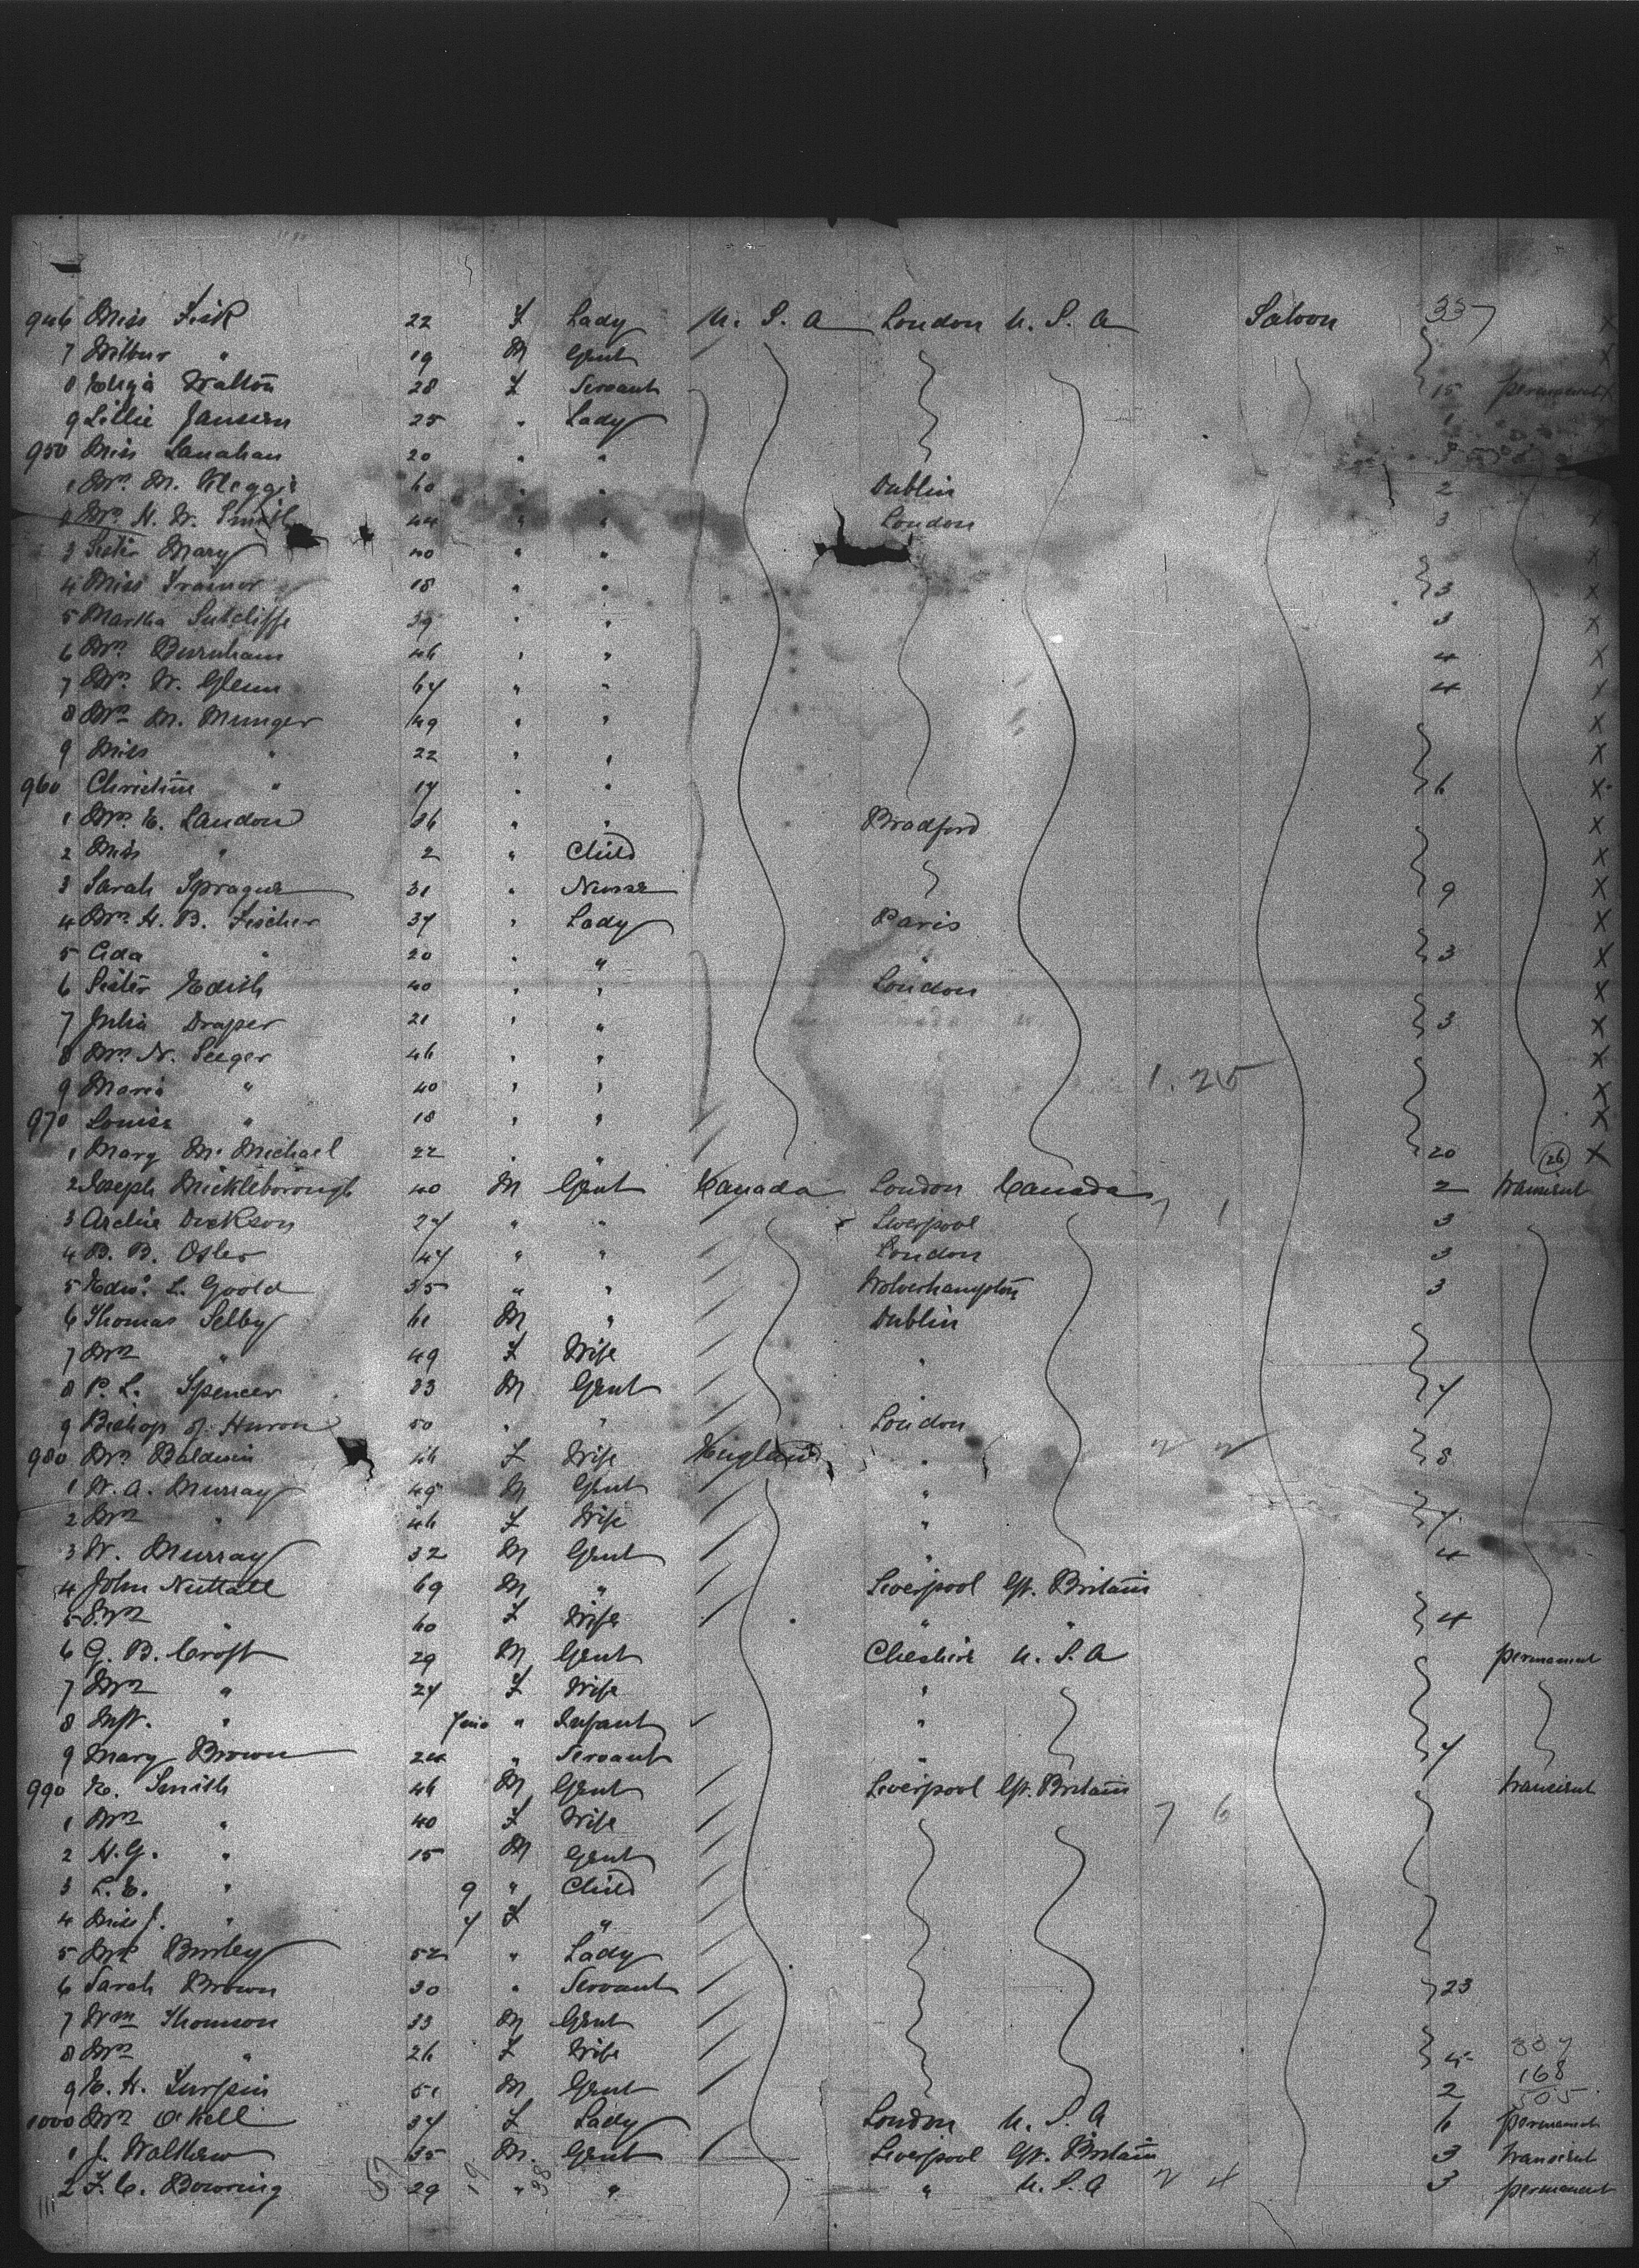 946 Miss Fisk 22 F Lady U. S. A London U. S. A Saloon 337 X
7 Wilbur " 19 M Gent X
8 Eliza Walton 28 F Servant 15 permanent X
9 Lillie Jansen 25 " Lady
950 Miss Lanahan 20 " "
1 Mrs. M. 60 " " Dublin 2
2 Mrs H. W. Smith 44 " " London 3
3 Sister Mary 40 " " X
4 Miss 18 " " 3 X
5 Martha Sutcliffe 39 " " 3 X
6 Mrs Burnham 46 " " 4 X
7 Mrs. W. Glenn 67 " " 4 X
8 Mrs M. Munger 49 " " X
9 Miss " 22 " " X
960 Christine " 17 " " 6 X
1 Mrs. E. Landon 36 " " Bradford X
2 Miss " 2 " Child X
3 Sarah Sprague 31 " Nurse 9 X
4 Mrs. H. B. Fischer 37 " Lady Paris X
5 Ada " 20 " " 3 X
6 Sister Edith 40 " " London X
7 Julia Draper 21 " " 3 X
8 Mrs. N. Seeger 46 " " X
9 Maria " 40 " " 1. 25 X
970 Louise " 18 " " X
1 Mary McMichael 22 " " 20 26 X
2 Joseph Mickleborough 40 M Gent Canada London Canada 7 1 2 transient
3 Archie Dickson 27 " " Liverpool 3
4 B. B. Osler 47 " " London 3
5 Edwd. L. Goold 35 " " Wolverhampton 3
6 Thomas Selby 61 M " Dublin
7 Mrs " 49 F Wife "
8 P. L. Spencer 33 M Gent " 7
9 Bishop of Huron 50 " " London
980 Mrs Baldwin 46 F Wife England " 2 2 8
1 W. A. Murray 49 M Gent "
2 Mrs " 46 F Wife " 7
3 W. Murray 32 M Gent " 4
4 John Nuttall 69 M " Liverpool Gt. Britain
5 Mrs " 60 F Wife " " 4
6 G. B. Croft 29 M Gent Cheshire U. S. A permanent
7 Mrs " 27 F Wife "
8 Inft. " 7 mo " Infant "
9 Mary Brown 24 " Servant " 7
990 E. Smith 46 M Gent Liverpool Gt. Britain transient
1 Mrs " 40 F Wife 7 6
2 H. G. " 15 M Gent
3 L. E. " 9 " Child
4 Miss J. " 7 F "
5 Mrs Burley 52 " Lady
6 Sarah Brown 30 " Servant 23
7 Wm Thomson 33 M Gent
8 Mrs " 26 F Wife 337
9 E. H. Turpin 51 M Gent 2 168
505
1000 Mrs O'Kell 37 F Lady London U. S. A 6 permanent
1 J. Walthew 35 M. Gent Liverpool Gt. Britain 3 transient
2 F. C. Bowring 29 " " " U. S. A 2 4 3 permanent